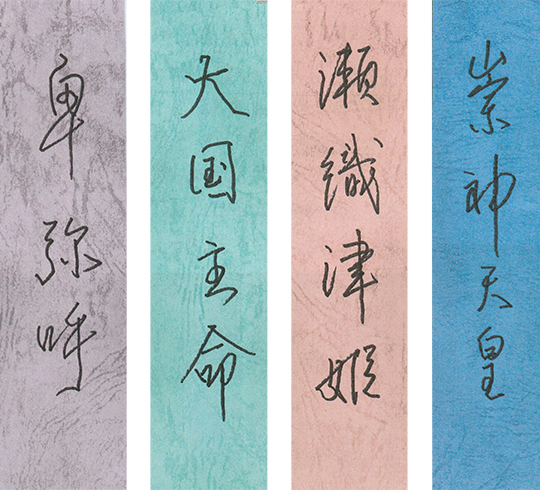 卑弥呼
大国主命
瀬織津姫
崇神天皇